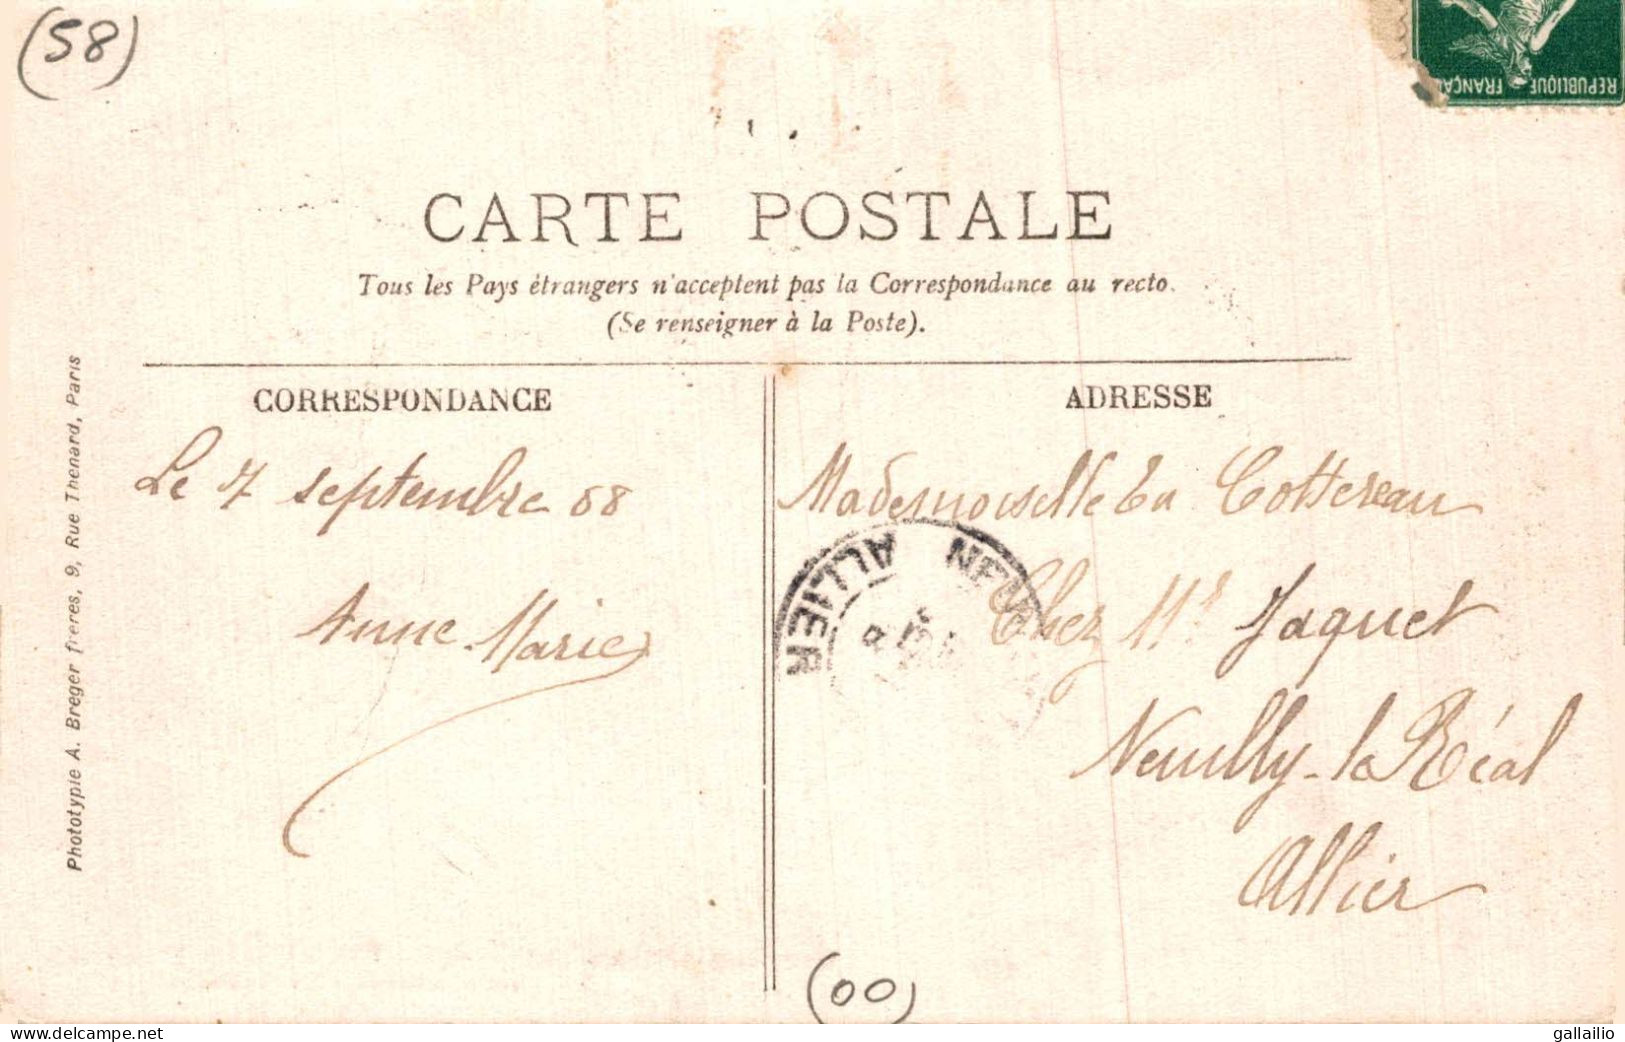 (58)
REPUBLIQUE FRANÇAISE
CARTE POSTALE
Tous les Pays étrangers n'acceptent pas la Correspondance au recto.
(Se renseigner à la Poste).
CORRESPONDANCE
Le 7 septembre 08
Anne-Marie
ADRESSE
Mademoiselle Eva Cottereau
Chez Mr Jaquet
Neuilly-le Réal
Allier
ALLIER
Phototypie A. Breger frères, 9, Rue Thenard, Paris
(00)
www.delcampe.net
gallailio